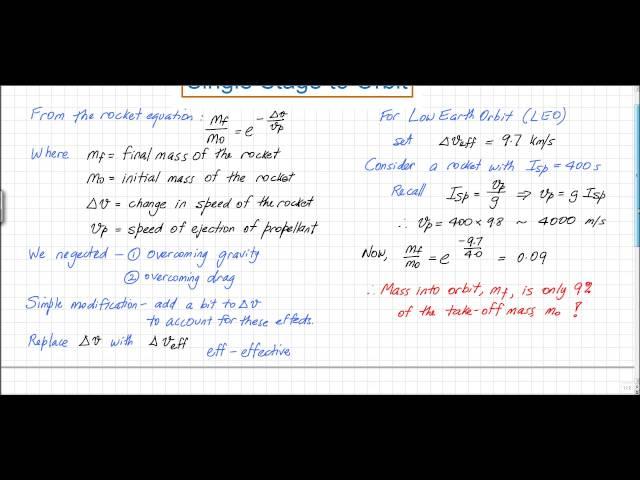 Single Stage to Orbit
From the rocket equation : m_f/m_o = e^(-Δv/v_p)
Where m_f = final mass of the rocket
m_o = initial mass of the rocket
Δv = change in speed of the rocket
v_p = speed of ejection of propellant
We negected – ① overcoming gravity
② overcoming drag
Simple modification – add a bit to Δv
to account for these effects.
Replace Δv with Δv_eff
eff – effective
For Low Earth Orbit (LEO)
set Δv_eff = 9.7 km/s
Consider a rocket with I_sp = 400 s
Recall I_sp = v_p/g ⇒ v_p = g I_sp
∴ v_p = 400 × 9.8 ~ 4000 m/s
Now, m_f/m_o = e^(-9.7/4.0) = 0.09
∴ Mass into orbit, m_f, is only 9%
of the take-off mass, m_o ?